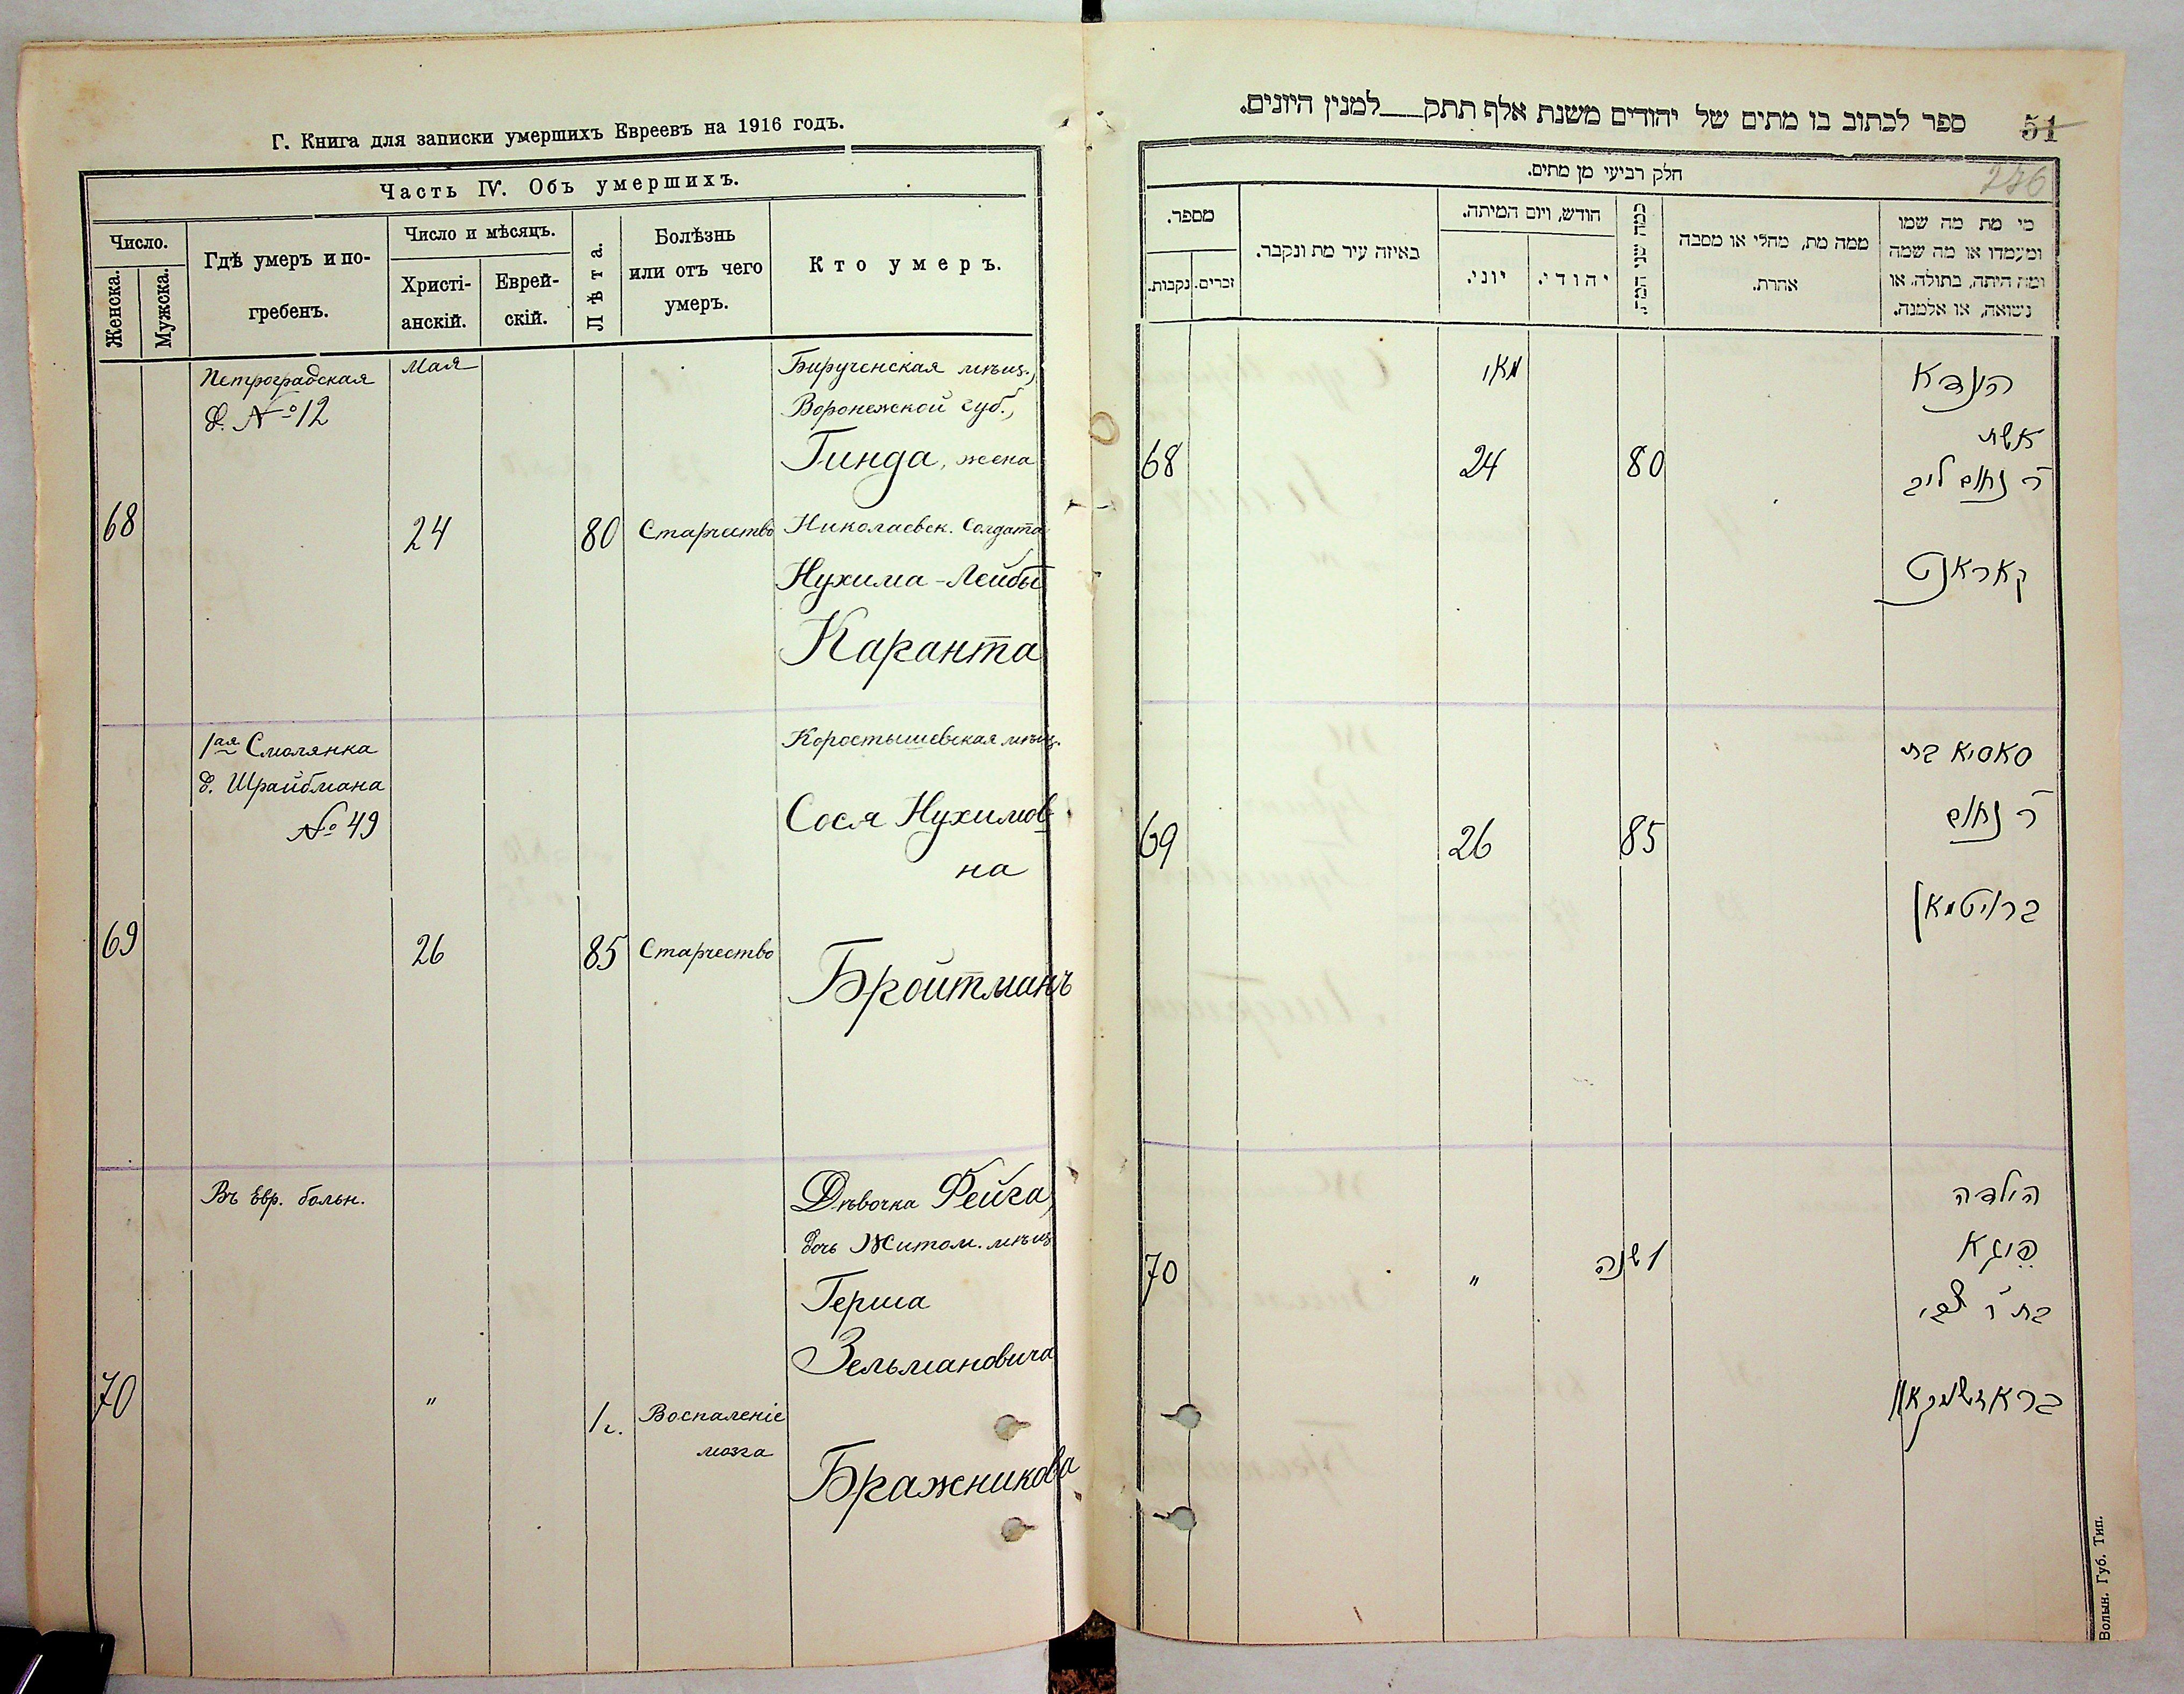 Г. Книга для записки умершихъ Евреевъ на 1916 годъ.
Часть IV. Объ умершихъ.
Число.
Женска.
Мужска.
Гдѣ умеръ и по-
гребенъ.
Число и мѣсяцъ.
Христі-
анскій.
Еврей-
скій.
Лѣта.
Болѣзнь
или отъ чего
умеръ.
Кто умеръ.
68
Петроградская
д. № 12
Мая
24
80
Старчество
Бирученская мѣщ.,
Воронежской губ.,
Гинда, жена
Николаевск. Солдата
Нухима-Лейбы
Каранта
69
1ая Смолянка
д. Шрайбмана
№ 49
26
85
Старчество
Коростышевская мѣщ.
Сося Нухимов-
на
Бройтманъ
70
Въ Евр. больн.
"
1 г.
Воспаленіе
мозга
Дѣвочка Фейга,
дочь Житом. мѣщ
Герша
Зельмановича
Бражникова
ספר לכתוב בו מתים של יהודים משנת אלף תתק למנין היונים.
51
276
חלק רביעי מן מתים.
מספר.
נקבות.
זכרים.
באיזה עיר מת ונקבר.
חודש, ויום המיתה.
יוני.
יהודי.
כמה שני המת.
ממה מת, מחלי או מסבה
אחרת.
מי מת מה שמו
ומעמדו או מה שמה
ומה היתה, בתולה, או
נשואה, או אלמנה.
68
מאי
24
80
הינדא
אשת
ר' נחום ליב
קאראנט
69
26
85
סאסיא בת
ר' נחום
ברויטמאן
70
"
1 שנה
הילדה
פייגא
בת ר' צבי
Волын. Губ. Тип.